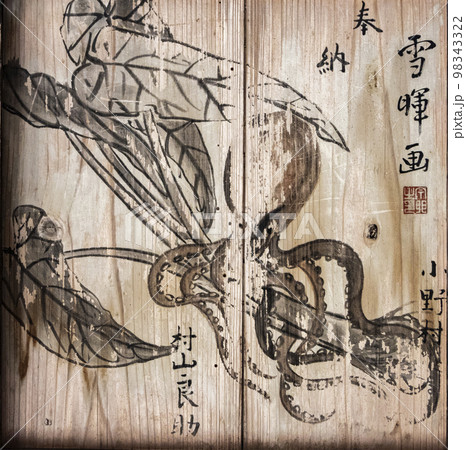 奉納
雪暉画
小野村
村山良助
PIXTA
pixta.jp - 98343322